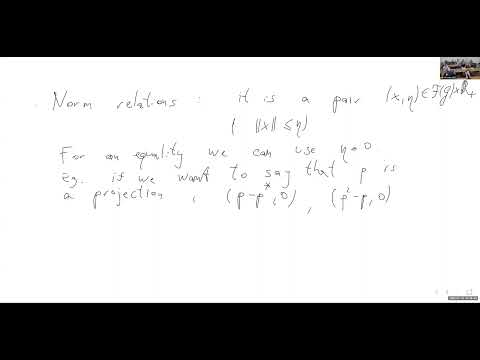 . Norm relations : it is a pair (x,η) ∈ F(g)×ℝ₊
( ‖x‖ ≤ η )
For an equality we can use η=0.
Eg. if we want to say that p is
a projection , (p-p*,0) , (p²-p,0)